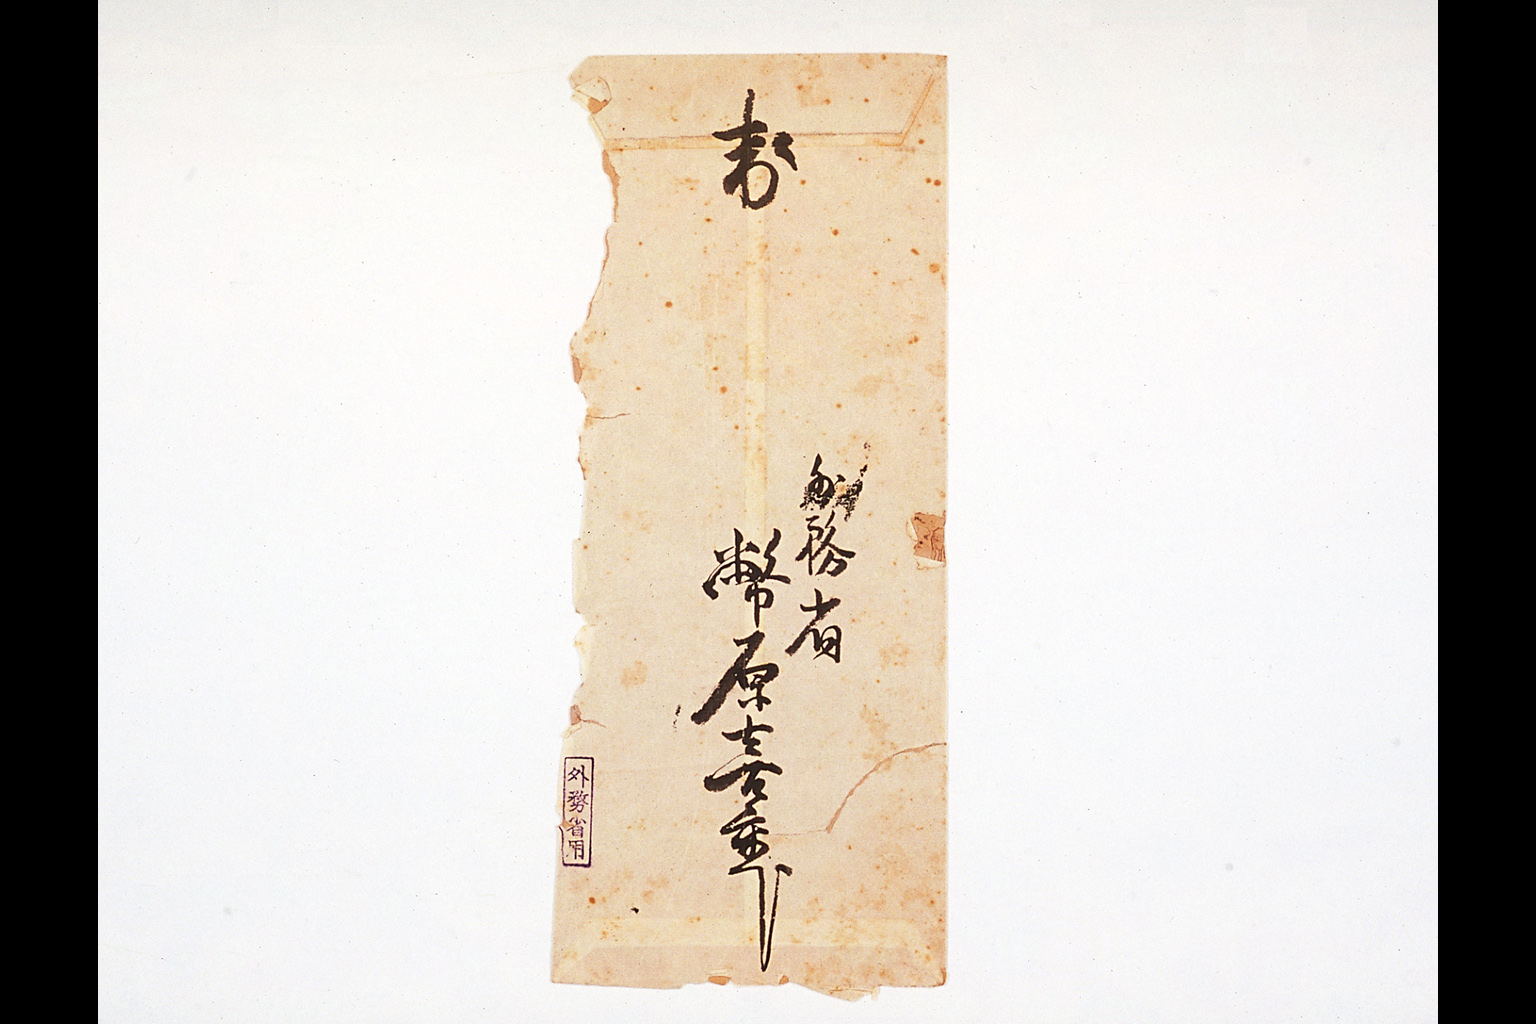 封
外務省
幣原喜重郎
外務省用